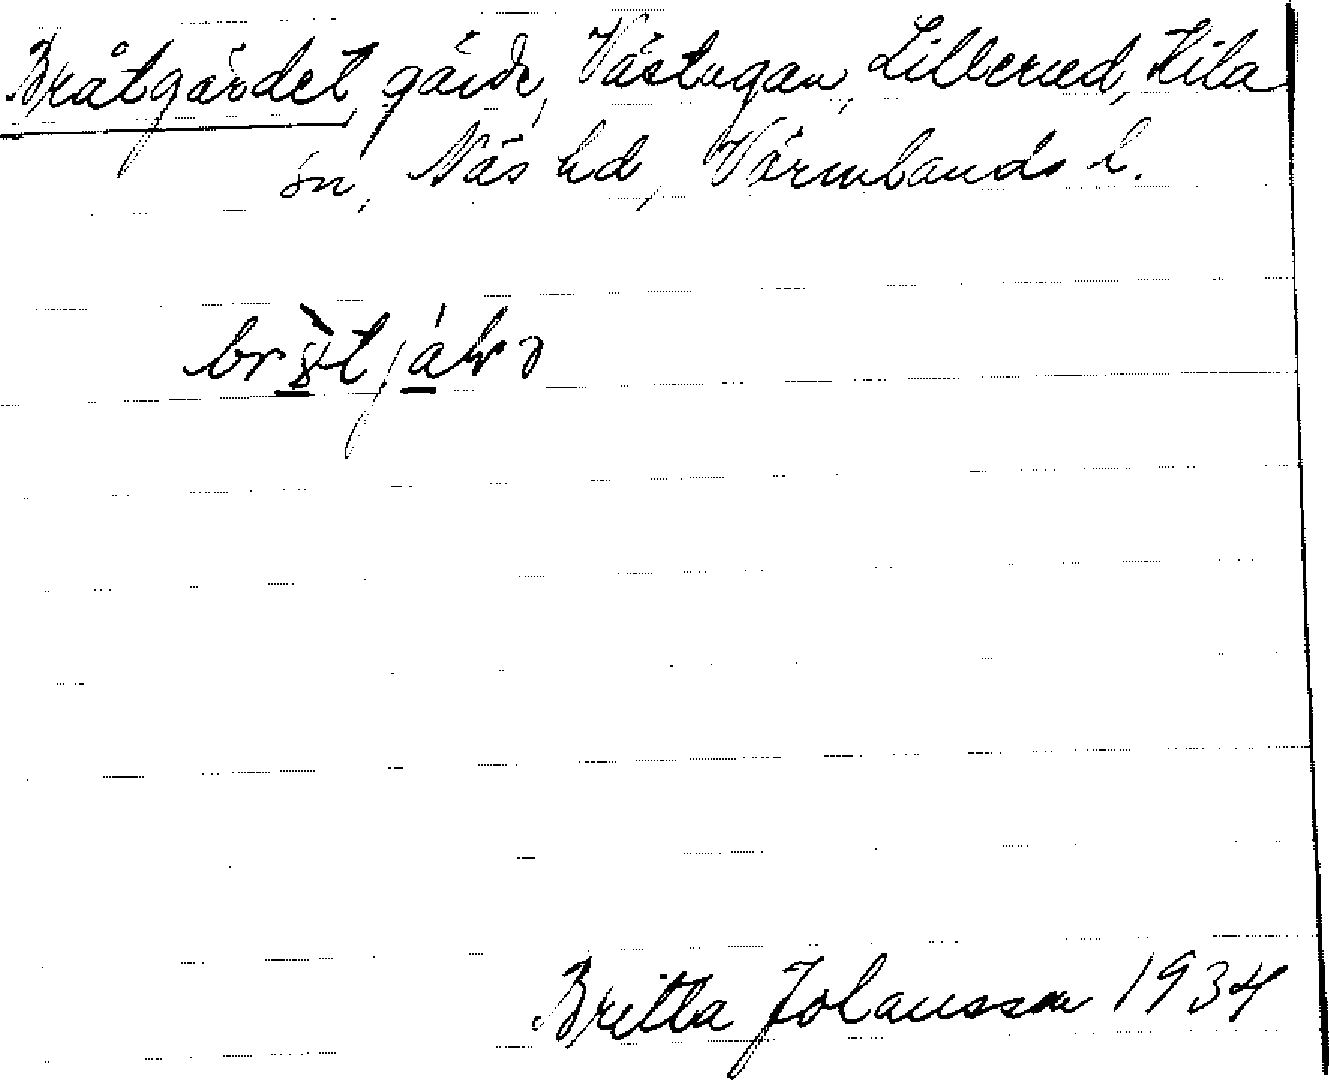 Bråtgärdet, gärde, Västugan, Lillerud, Kila
sn, Näs hd, Värmlands l.
Britta Johansson 1934